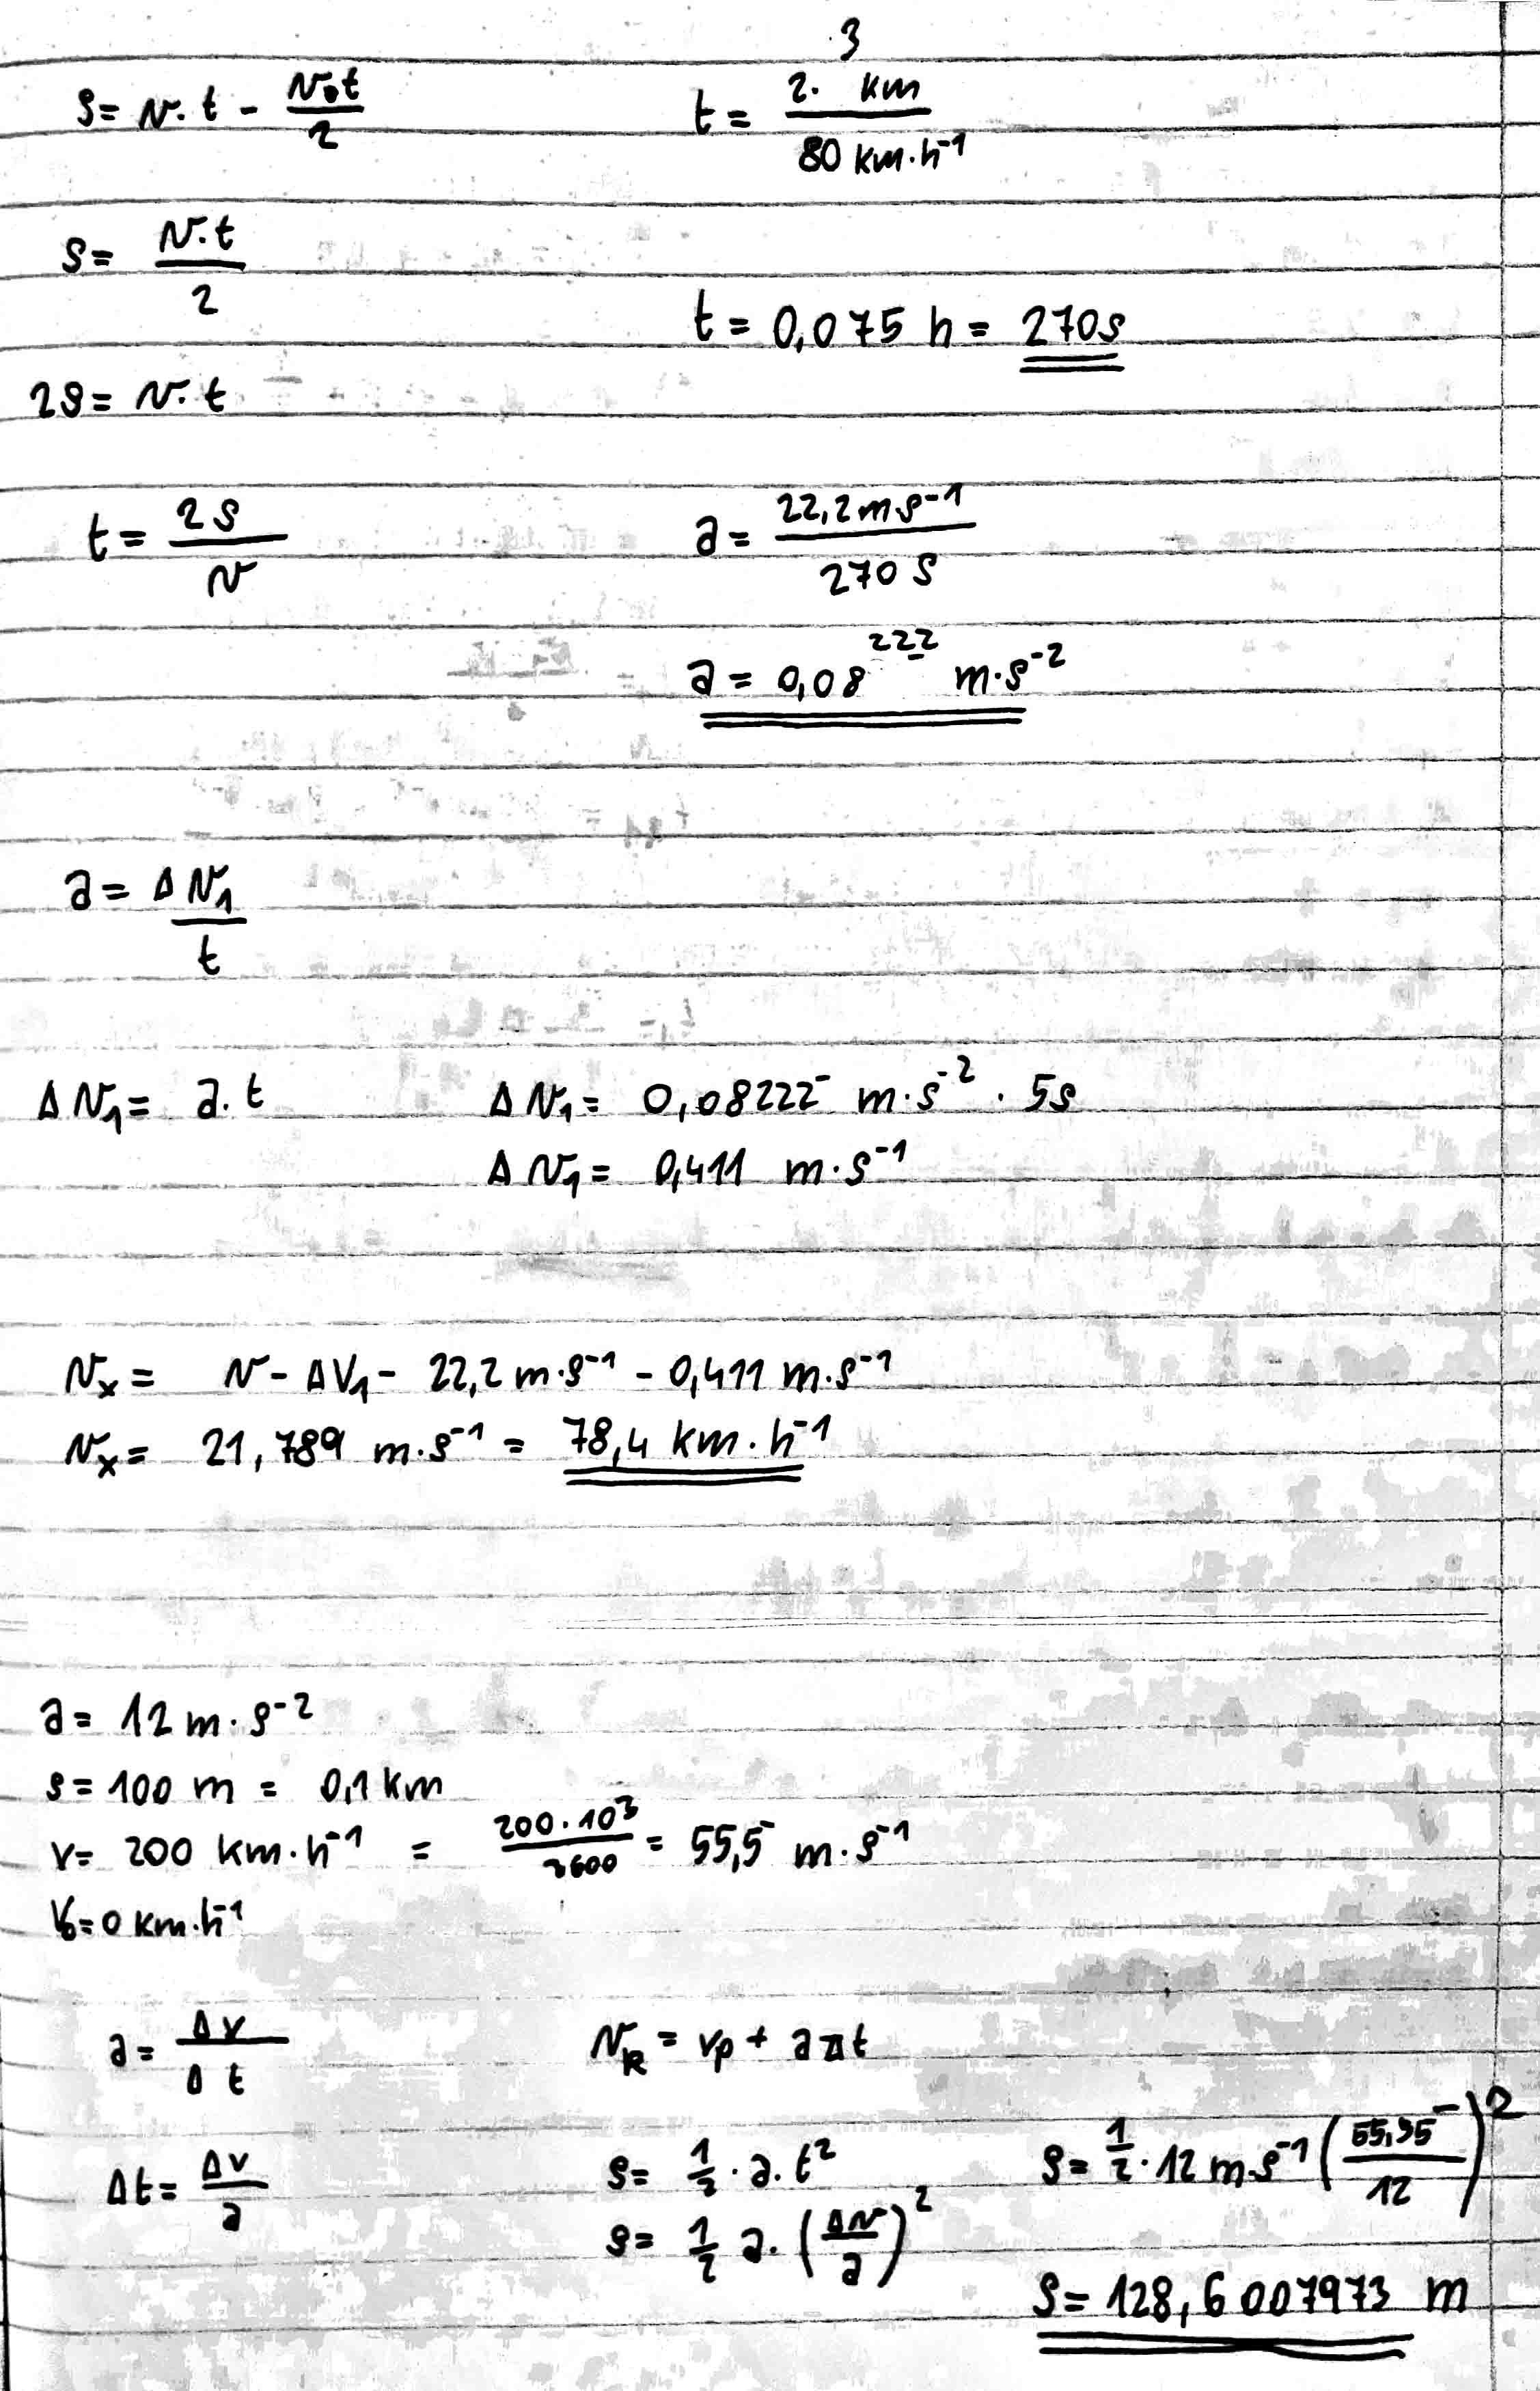 3
s = v · t - v₀t/2    t = 2 · km / 80 km·h⁻¹
s = v·t / 2
t = 0,075 h = 270s
2s = v · t
t = 2s / v    a = 22,2 m s⁻¹ / 270 s
a = 0,08222 m·s⁻²
a = Δv₁ / t
Δv₁ = a · t    Δv₁ = 0,08222 m·s⁻² · 5s
Δv₁ = 0,411 m·s⁻¹
vₓ = v - ΔV₁ - 22,2 m·s⁻¹ - 0,411 m·s⁻¹
vₓ = 21,789 m·s⁻¹ = 78,4 km·h⁻¹
a = 12 m·s⁻²
s = 100 m = 0,1 km
v = 200 km·h⁻¹ = 200·10³ / 3600 = 55,5 m·s⁻¹
v₀ = 0 km·h⁻¹
a = Δv / Δt    vₖ = vp + aΔt
Δt = Δv / a    s = 1/2 · a · t²    s = 1/2 · 12 m·s⁻¹ (    / 12)²
s = 1/2 a · (Δv / a)²
s = 128,6007973 m